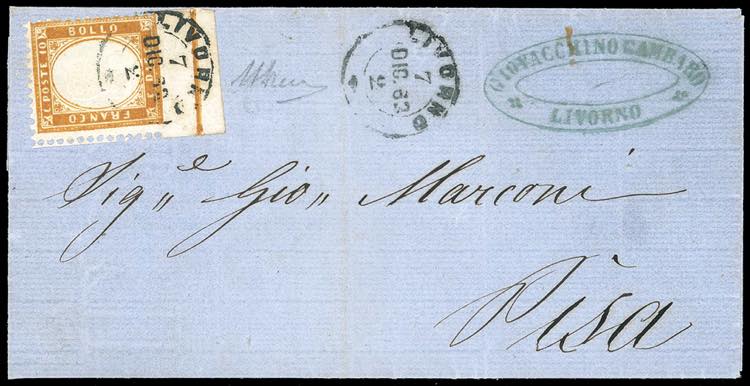 FRANCO
C. POSTE 10
BOLLO
LIVORNO
7
DIC 63
LIVORNO
7
DIC 63
GIOVACCHINO GAMBARO
LIVORNO
Sig.e Gio. Marconi
Pisa